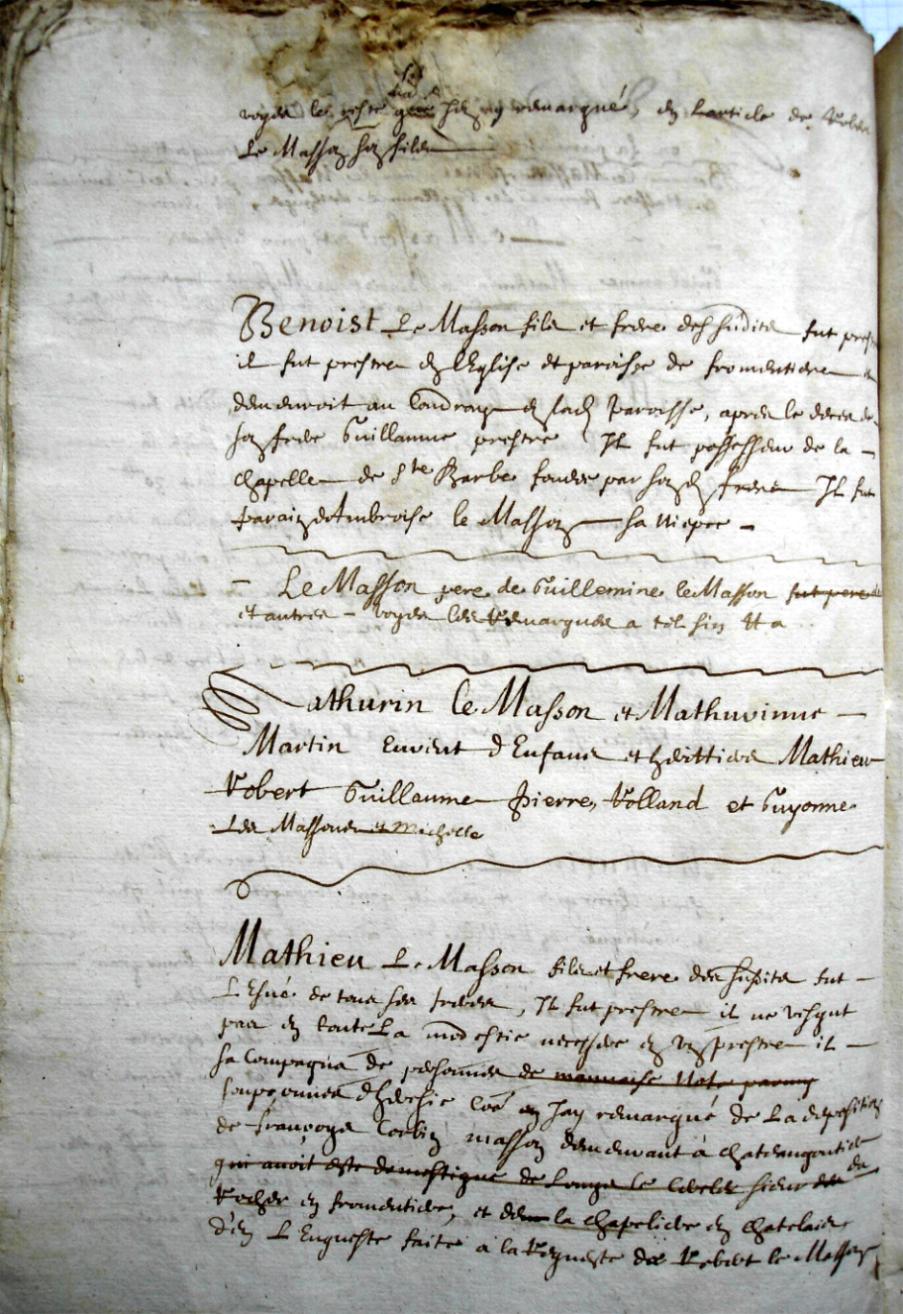 voyes le reste que Jay remarqué, en Larticle de Robert
Le Masson son filz
Benoist Le Masson filz et frere des susdits fut
il fut prestre en l'Eglise et paroisse de fromentieres
demeuroit au Coudray en lad paroisse, apres le deces de
son frere Guillaume prestre Il fut possesseur de la
chapelle de Ste Barbe fondee par sond frere Il fut
parain d'Ambroise le Masson sa niepce
Le Masson pere de Guillemine le Masson fut pere
et autres - voyes les Remarques a tel sin
Mathurin le Masson et Mathurinne
Martin Eurent d'Enfans et heritiers Mathieu
Robert Guillaume Pierre, Rolland et Guyonne
Les Massons et Michelle
Mathieu Le Masson filz et frere des susdits fut
L'Esné de tous ses freres, Il fut prestre il ne vesqut
pas en toute La modestie necessere en un prestre il
sa Compagna de personnes de mauvaise Note parmy
soupçonnes d'heresie Coe en Jay remarqué de La deposition
de françoys Corbin masson demeurant à chateaugontier
qui avoit esté domestique de le sieur du
Rocher en fromentieres, et de la chapeliere en chatelain
d'en L'Enqueste faite a la Requeste de Robert le Masson